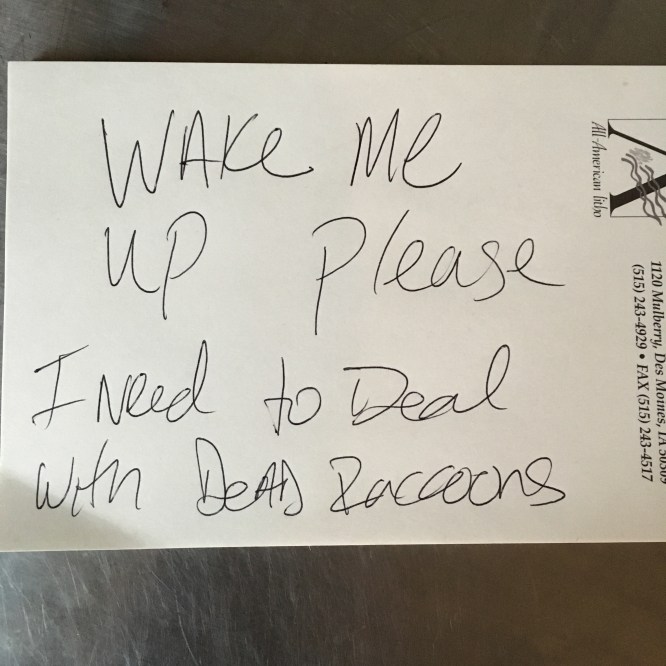 WAKe Me
UP Please
I Need to Deal
With DeAD Raccoons
All-American litho
1120 Mulberry, Des Moines, IA 50309
(515) 243-4929 • FAX (515) 243-4517